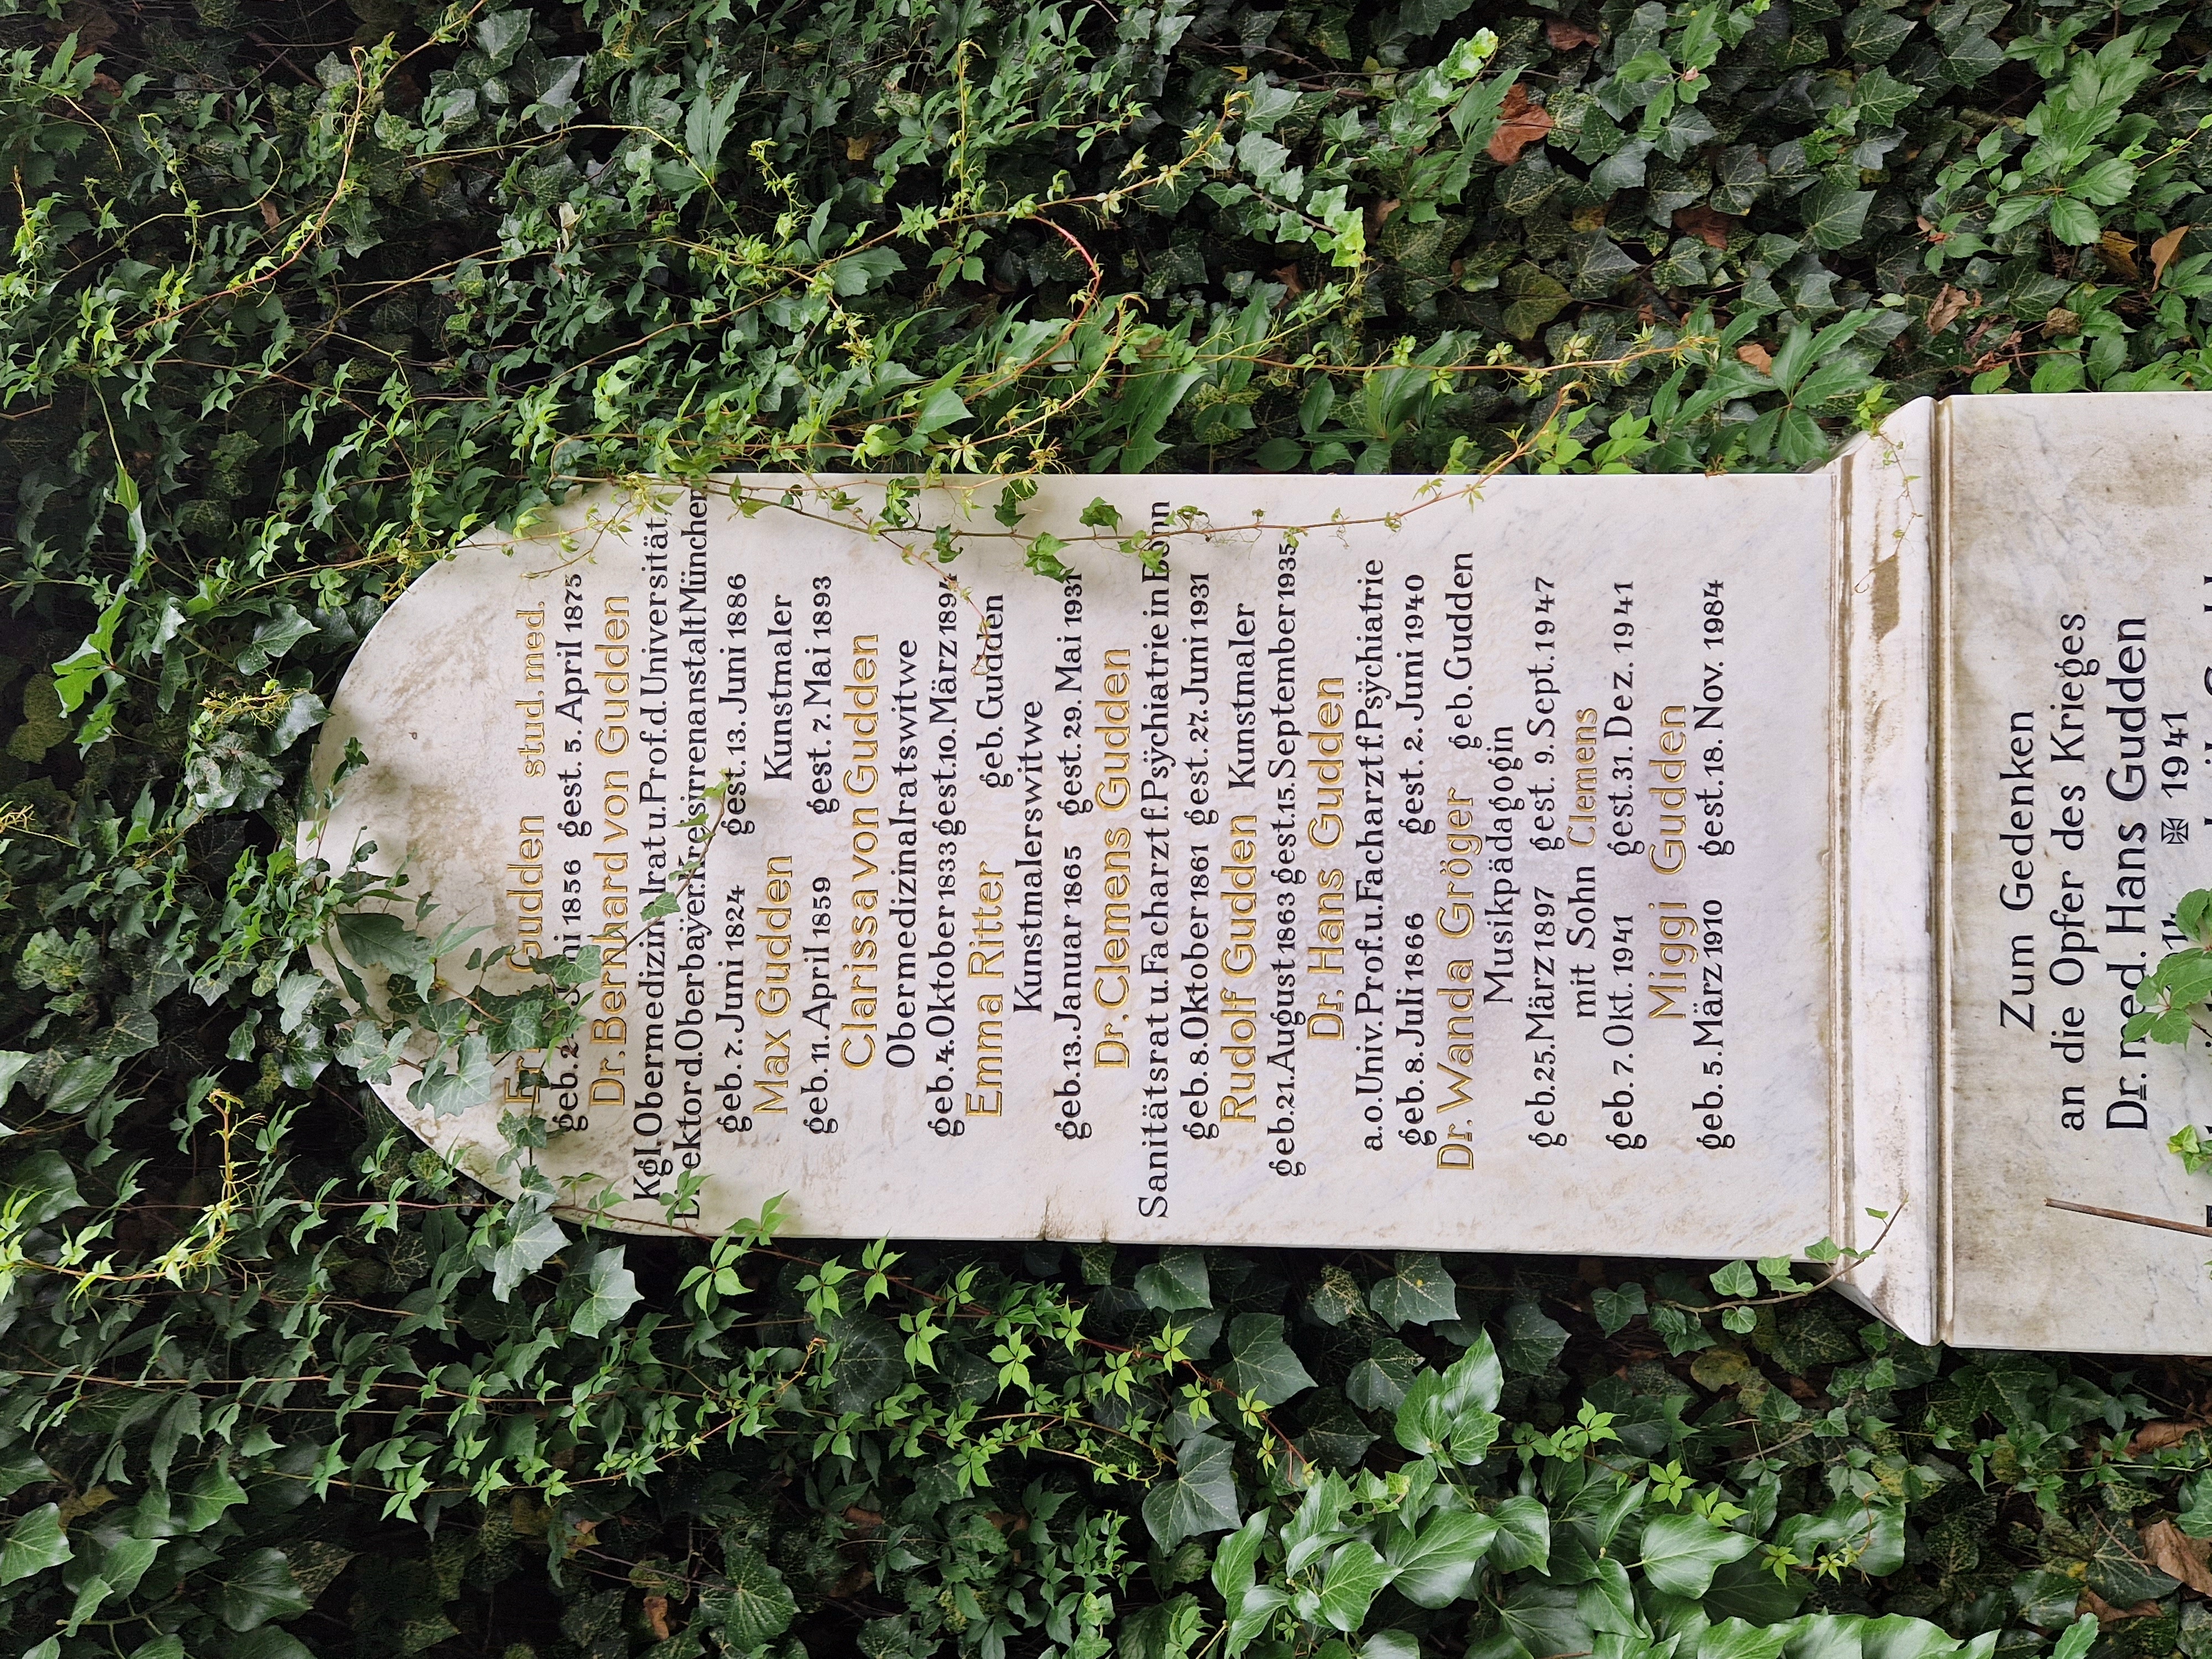 Gudden stud. med.
geb. 2 1856 gest. 5. April 1875
Dr. Bernhard von Gudden
Kgl. Obermedizinalrat u. Prof. d. Universität
d. Oberbaÿer. Kreisirrenanstalt München
geb. 7. Juni 1824 gest. 13. Juni 1886
Max Gudden Kunstmaler
geb. 11. April 1859 gest. 7. Mai 1893
Clarissa von Gudden
Obermedizinalratswitwe
geb. 4. Oktober 1833 gest. 10. März 1894
Emma Ritter geb. Gudden
Kunstmalerswitwe
geb. 13. Januar 1865 gest. 29. Mai 1931
Dr. Clemens Gudden
Sanitätsrat u. Facharzt f. Psÿchiatrie in Bonn
geb. 8. Oktober 1861 gest. 27. Juni 1931
Rudolf Gudden Kunstmaler
geb. 21. August 1863 gest. 15. September 1935
Dr. Hans Gudden
a. o. Univ. Prof. u. Facharzt f. Psÿchiatrie
geb. 8. Juli 1866 gest. 2. Juni 1940
Dr. Wanda Gröger geb. Gudden
Musikpädagogin
geb. 25. März 1897 gest. 9. Sept. 1947
mit Sohn Clemens
geb. 7. Okt. 1941 gest. 31. Dez. 1941
Miggi Gudden
geb. 5. März 1910 gest. 18. Nov. 1984
Zum Gedenken
an die Opfer des Krieges
Dr. med. Hans Gudden
✠ 1941